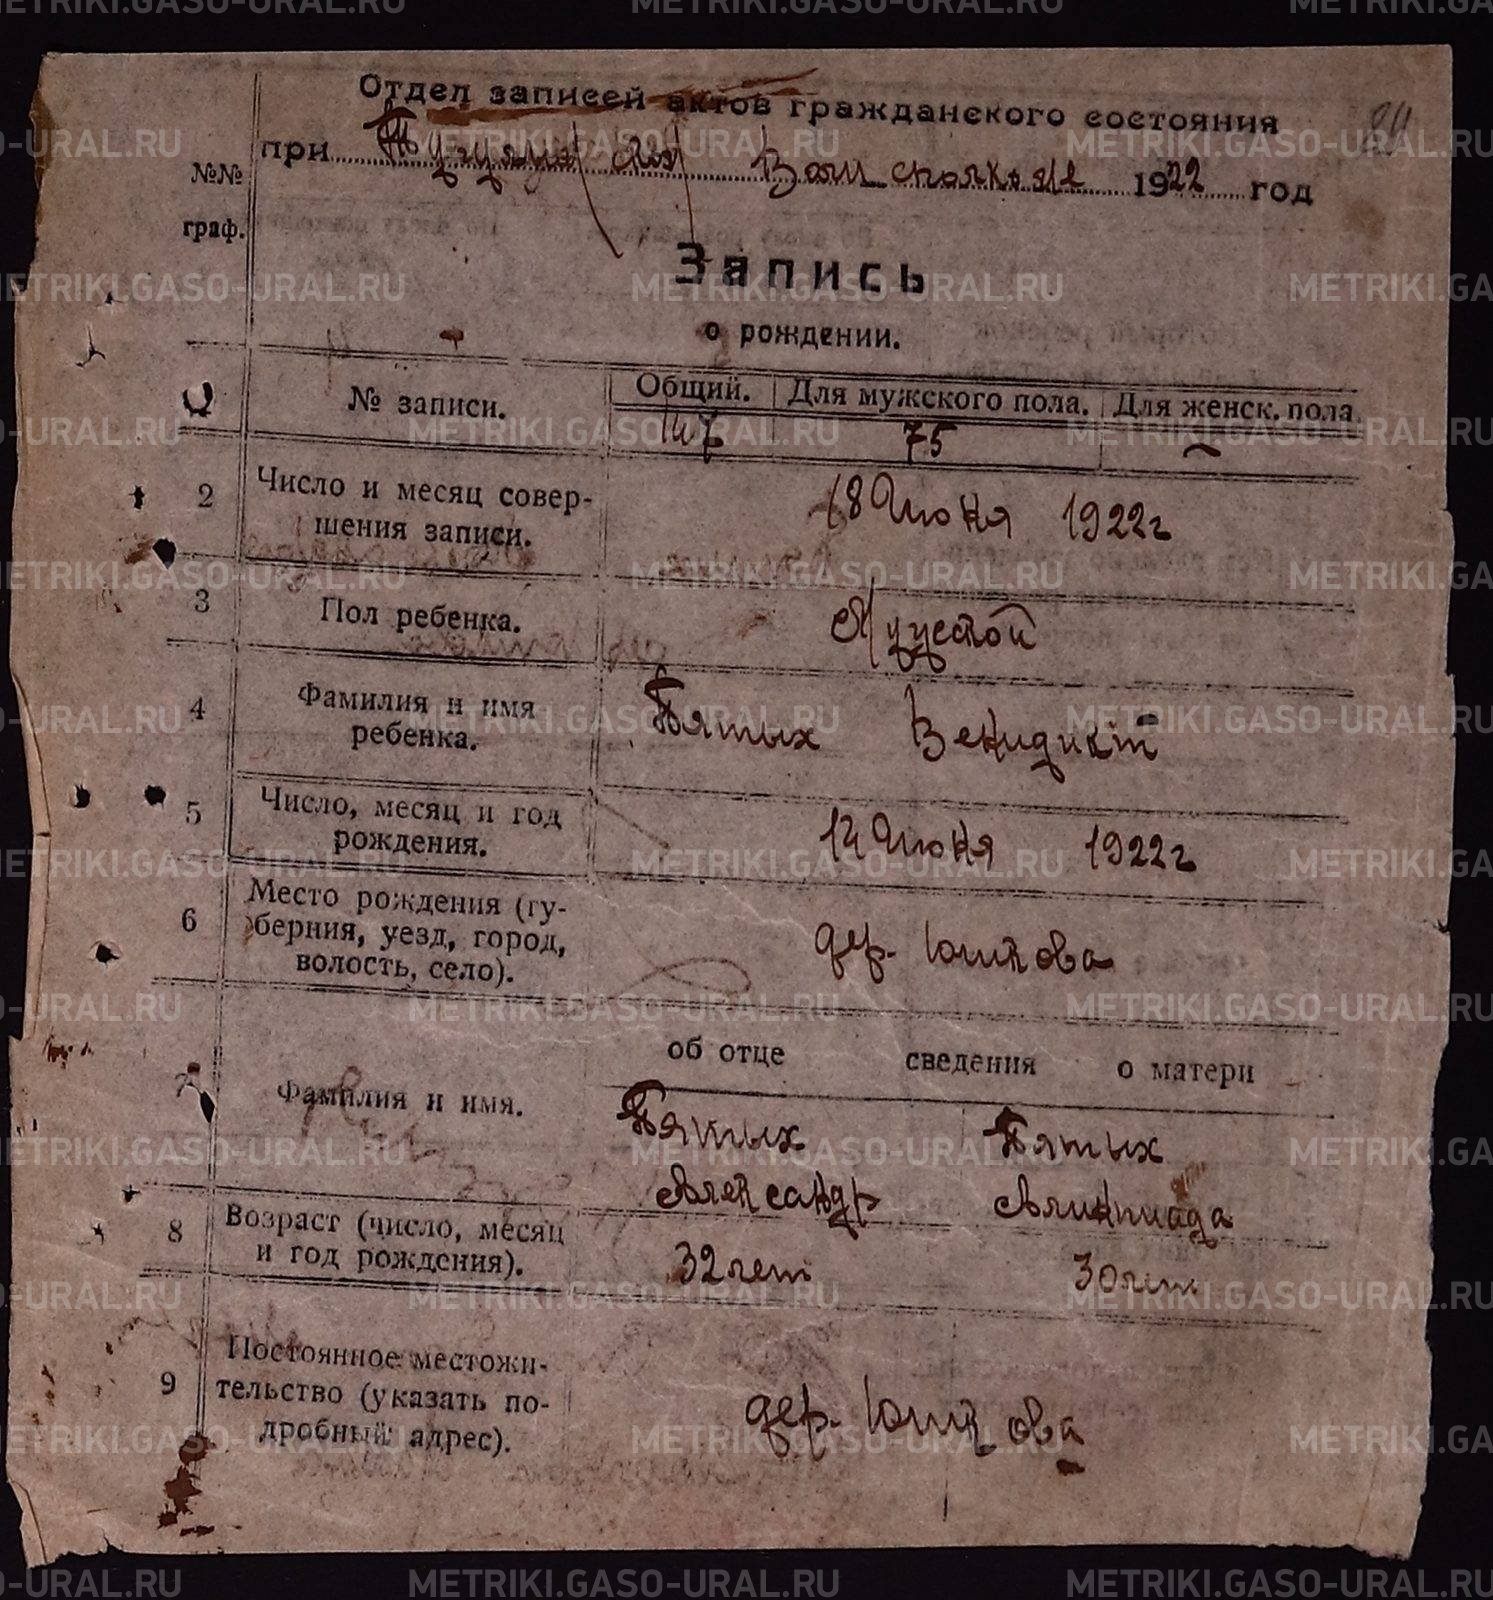 Отдел записей актов гражданского состояния
при Волисполкоме 1922 год
№№
граф.
Запись
о рождении.
№ записи.
Общий. Для мужского пола. Для женск. пола
147 75 —
2 Число и месяц совер-
шения записи.
18 Июня 1922 г
3 Пол ребенка.
Мужской
4 Фамилия и имя
ребенка.
Пятых Венидикт
5 Число, месяц и год
рождения.
14 Июня 1922 г
6 Место рождения (гу-
берния, уезд, город,
волость, село).
дер. Юшкова
об отце сведения о матери
7 Фамилия и имя.
Пятых Пятых
Александр Алинпиада
8 Возраст (число, месяц
и год рождения).
32 лет 30 лет
9 Постоянное местожи-
тельство (указать по-
дробный адрес).
дер. Юшкова
METRIKI.GASO-URAL.RU